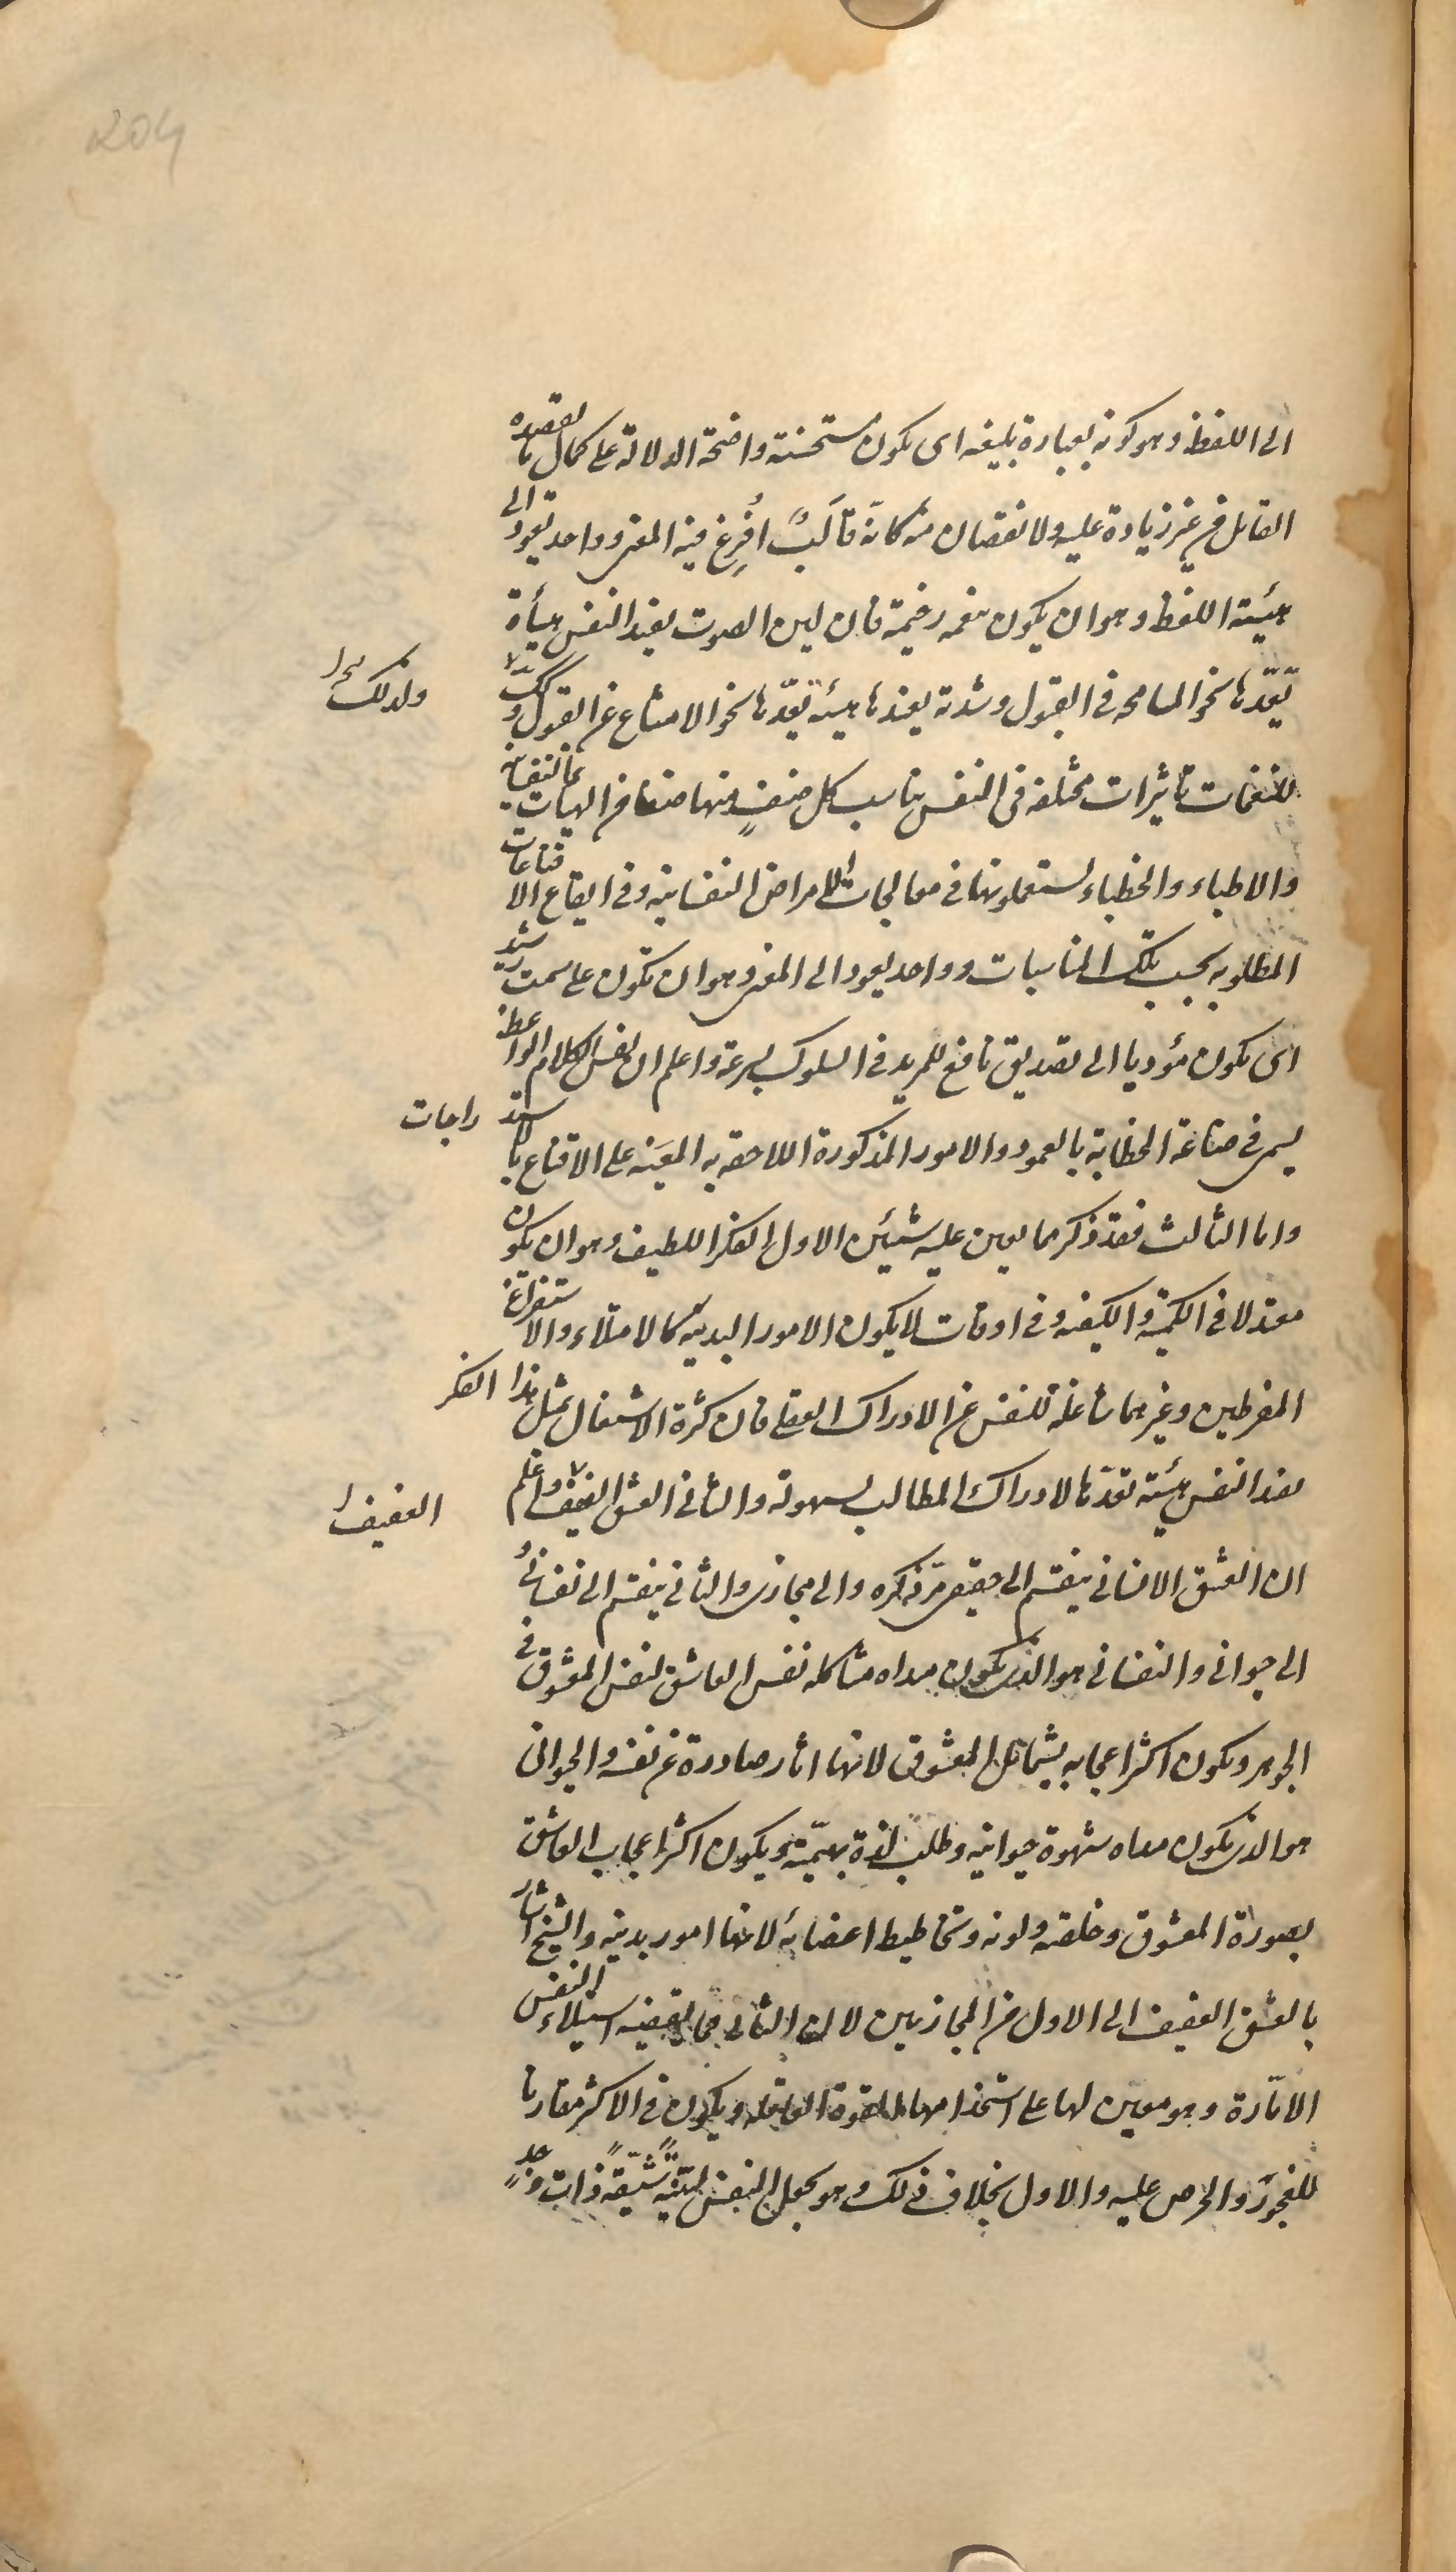 204
الى اللفظ وهو كونه بعبارة بليغه اى يكون مستحسنة واضحة الدلالة على كمال ما يقصده
القائل من غير زيادة عليه ولا نقصان منه كانّه قالَبٌ اُفرِغ فيه المعنى وواحد يعود الى
هيئة اللفظ وهو ان يكون بنغمه رخيمة فان لين الصوت يفيد النفس هيأة
تعّدّها نحو المسامحه فى القبول وشدته يفيدها هيئة تعّدّها نحو الامتناع عن القبول و
ولذلك
للنغمات تاثيرات مختلفه فى النفس يناسب كل صنفٍ منها صنفا من الهيات النفسانيه
والاطباء والخطباء يستعملونها فى معالجات الامراض النفسانيه وفى ايقاع الاقناعات
المطلوبه بحسب تلك المناسبات وواحد يعود الى المعنى وهو ان تكون على سمت رشيد
اى يكون مؤديا الى تصديق نافع للمريد فى السلوك بسرعة واعلم ان نفس الكلام الواعظ
يسمى فى صناعة الخطابة بالعمود والامور المذكورة اللاحقه به المعينه على الاقناع بالاستد
راجات
واما الثالث فقد ذكر مما يعين عليه شيئين الاول الفكر اللطيف وهو ان يكون
معتدلا فى الكمية والكيفيه وفى اوقات لا يكون الامور البدنيه كالامتلاء والاستفراغ
المفرطين وغيرهما شاغلة للنفس عن الادراك العقلى فان كثرة الاشتغال بمثل هذا الفكر
يفيد النفس هيئة تعدّها لادراك المطالب بسهولة والثانى العشق العفيف واعلم
العفيف
ان العشق الانسانى ينقسم الى حقيقى مرّ ذكره والى مجازى والثانى ينقسم الى نفسانى و
الى حيوانى والنفسانى هو الذى يكون مبداه مشاكله نفس العاشق لنفس المعشوق فى
الجوهر ويكون اكثر اعجابه بشمائل المعشوق لانها اثار صادرة عن نفسه والحيوانى
هو الذى يكون مبداه شهوة حيوانيه وطلب لذة بهيميّة ويكون اكثر اعجاب العاشق
بصورة المعشوق وخلقته ولونه وتخاطيط اعضائه لانها امور بدنيه والشيخ اشار
بالعشق العفيف الى الاول من المجازيين لان الثانى مما يقتضيه استيلاء النفس
الامّارة وهو معين لها على استخدامها القوة العاقله ويكون فى الاكثر مقارنا
للفجور والحرص عليه والاول بخلاف ذلك وهو يجعل النفس ليّنة شيّقة ذات وجدٍ